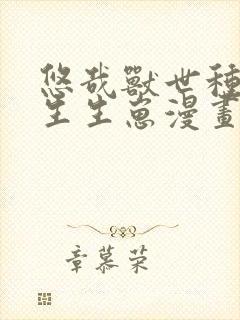 悠哉獸世種
生生崽漫畫
章慕荣